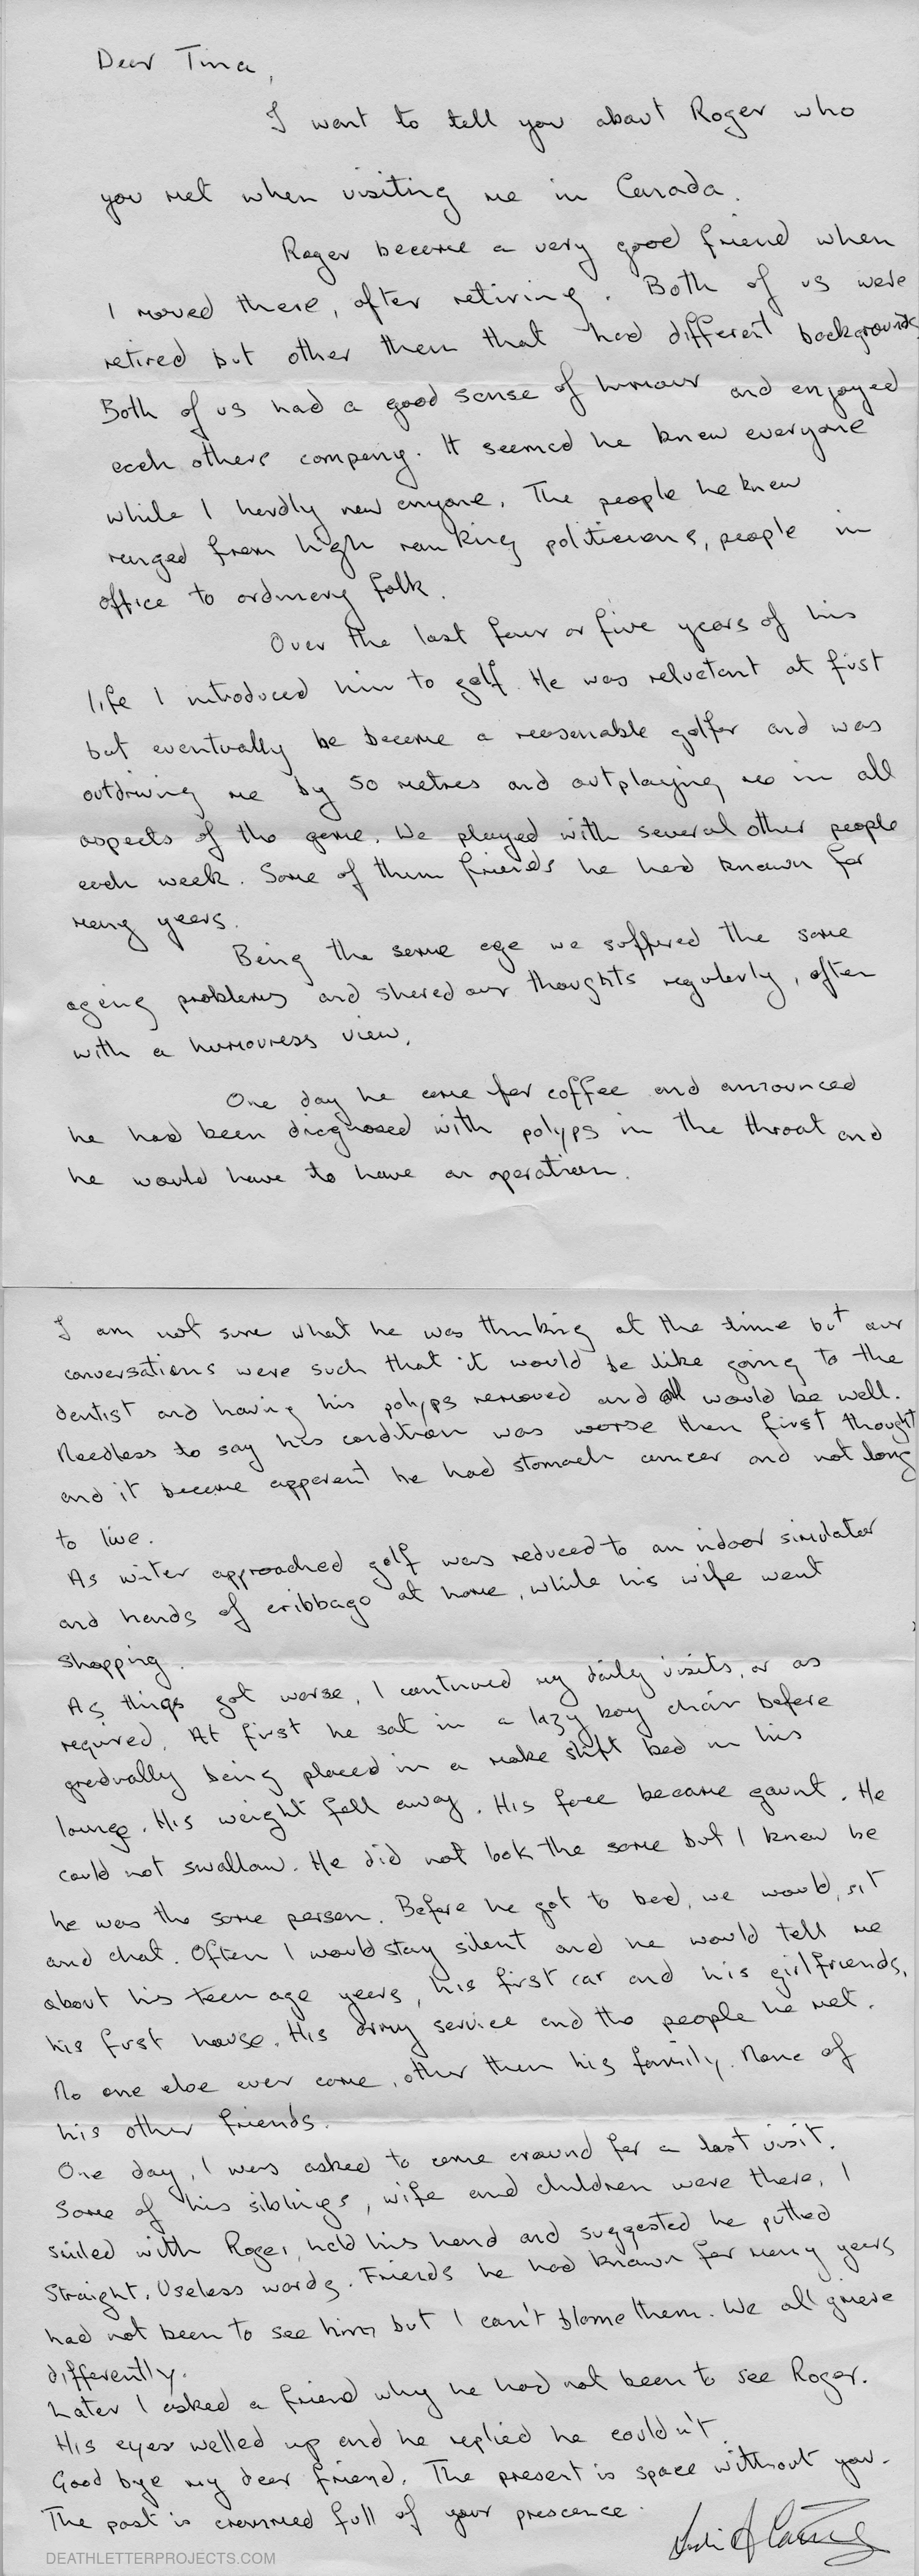 Dear Tina,
I want to tell you about Roger who
you met when visiting me in Canada.
Roger became a very good friend when
I moved there, after retiring. Both of us were
retired but other then that had different backgrounds
Both of us had a good sense of humour and enjoyed
each others company. It seemed he knew everyone
while I hardly new anyone. The people he knew
ranged from high ranking politicians, people in
office to ordinary folk.
Over the last four or five years of his
life I introduced him to golf. He was reluctant at first
but eventually he became a reasonable golfer and was
outdriving me by 50 metres and outplaying me in all
aspects of the game. We played with several other people
each week. Some of them friends he had known for
many years.
Being the same age we suffered the same
ageing problems and shared our thoughts regularly, often
with a humouress view.
One day he came for coffee and announced
he had been diagnosed with polyps in the throat and
he would have to have an operation.
I am not sure what he was thinking at the time but our
conversations were such that it would be like going to the
dentist and having his polyps removed and all would be well.
Needless to say his condition was worse then first thought
and it became apparent he had stomach cancer and not long
to live.
As witer approached golf was reduced to an indoor simulator
and hands of cribbage at home, while his wife went
shopping.
As things got worse, I continued my daily visits, or as
required. At first he sat in a lazy boy chair before
gradually being placed in a make shift bed in his
lounge. His weight fell away. His face became gaunt. He
could not swallow. He did not look the same but I knew he
he was the same person. Before he got to bed, we would sit
and chat. Often I would stay silent and he would tell me
about his teen age years, his first car and his girlfriends,
his first house. His army service and the people he met.
No one else ever came, other then his family. None of
his other friends.
One day, I was asked to come around for a last visit.
Some of his siblings, wife and children were there. I
smiled with Roger, held his hand and suggested he putted
straight. Useless words. Friends he had known for many years
had not been to see him but I can't blame them. We all grieve
differently.
Later I asked a friend why he had not been to see Roger.
His eyes welled up and he replied he couldn't.
Good bye my dear friend. The present is space without you.
The past is crammed full of your prescence.
DEATHLETTERPROJECTS.COM